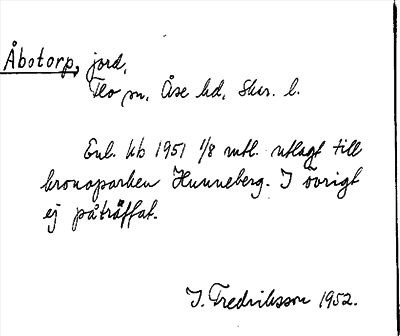 Åbotorp, jord,
Flo sn, Åse hd, Skar. l.
Enl. kb 1951 1/8 mtl. utlagt till
kronoparken Hunneberg. I övrigt
ej påträffat.
I. Fredriksson 1952.